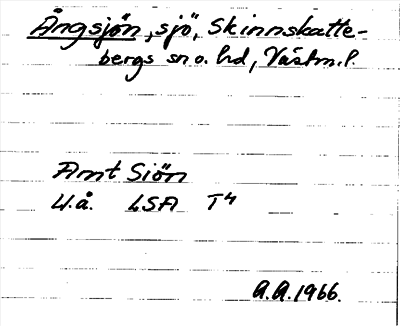 Ångsjön, sjö, Skinnskatte-
bergs sn o. hd, Västm.l.
Amt Siön
U.å. LSA T4
A.A. 1966.